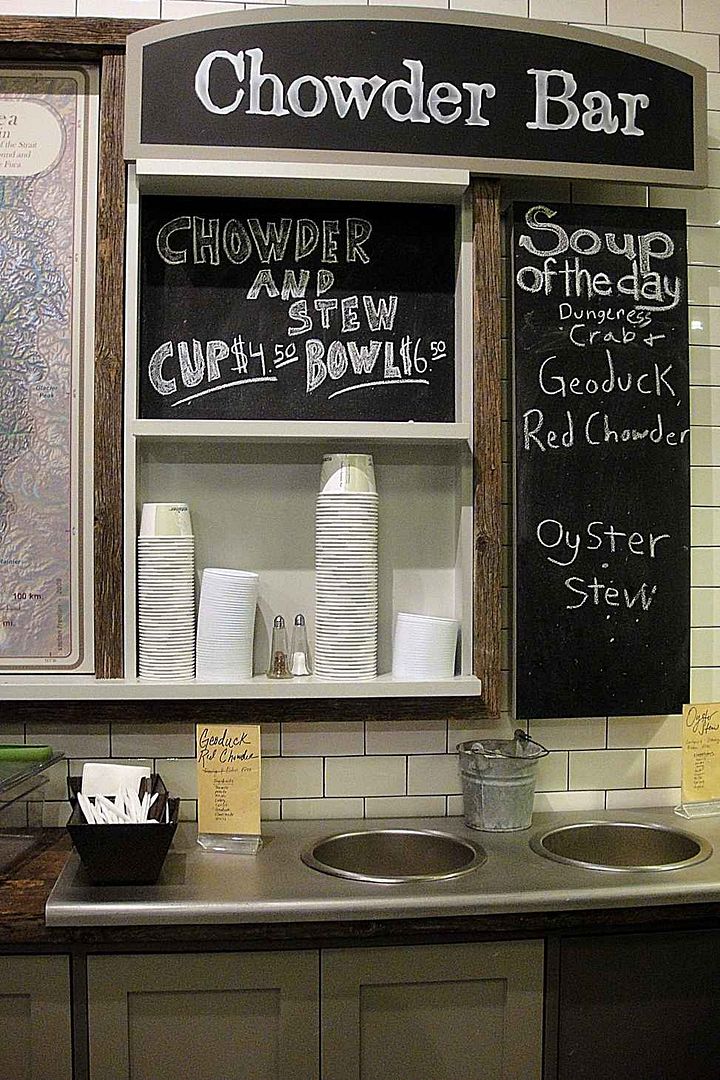 Chowder Bar
CHOWDER
AND
STEW
CUP $4.50 BOWL $6.50
Soup
of the day
Dungeness
Crab +
Geoduck
Red Chowder
Oyster
Stew
Geoduck
Red Chowder
Oyster
ea
in
of the Strait
ound and
Fuca
100 km
mi.